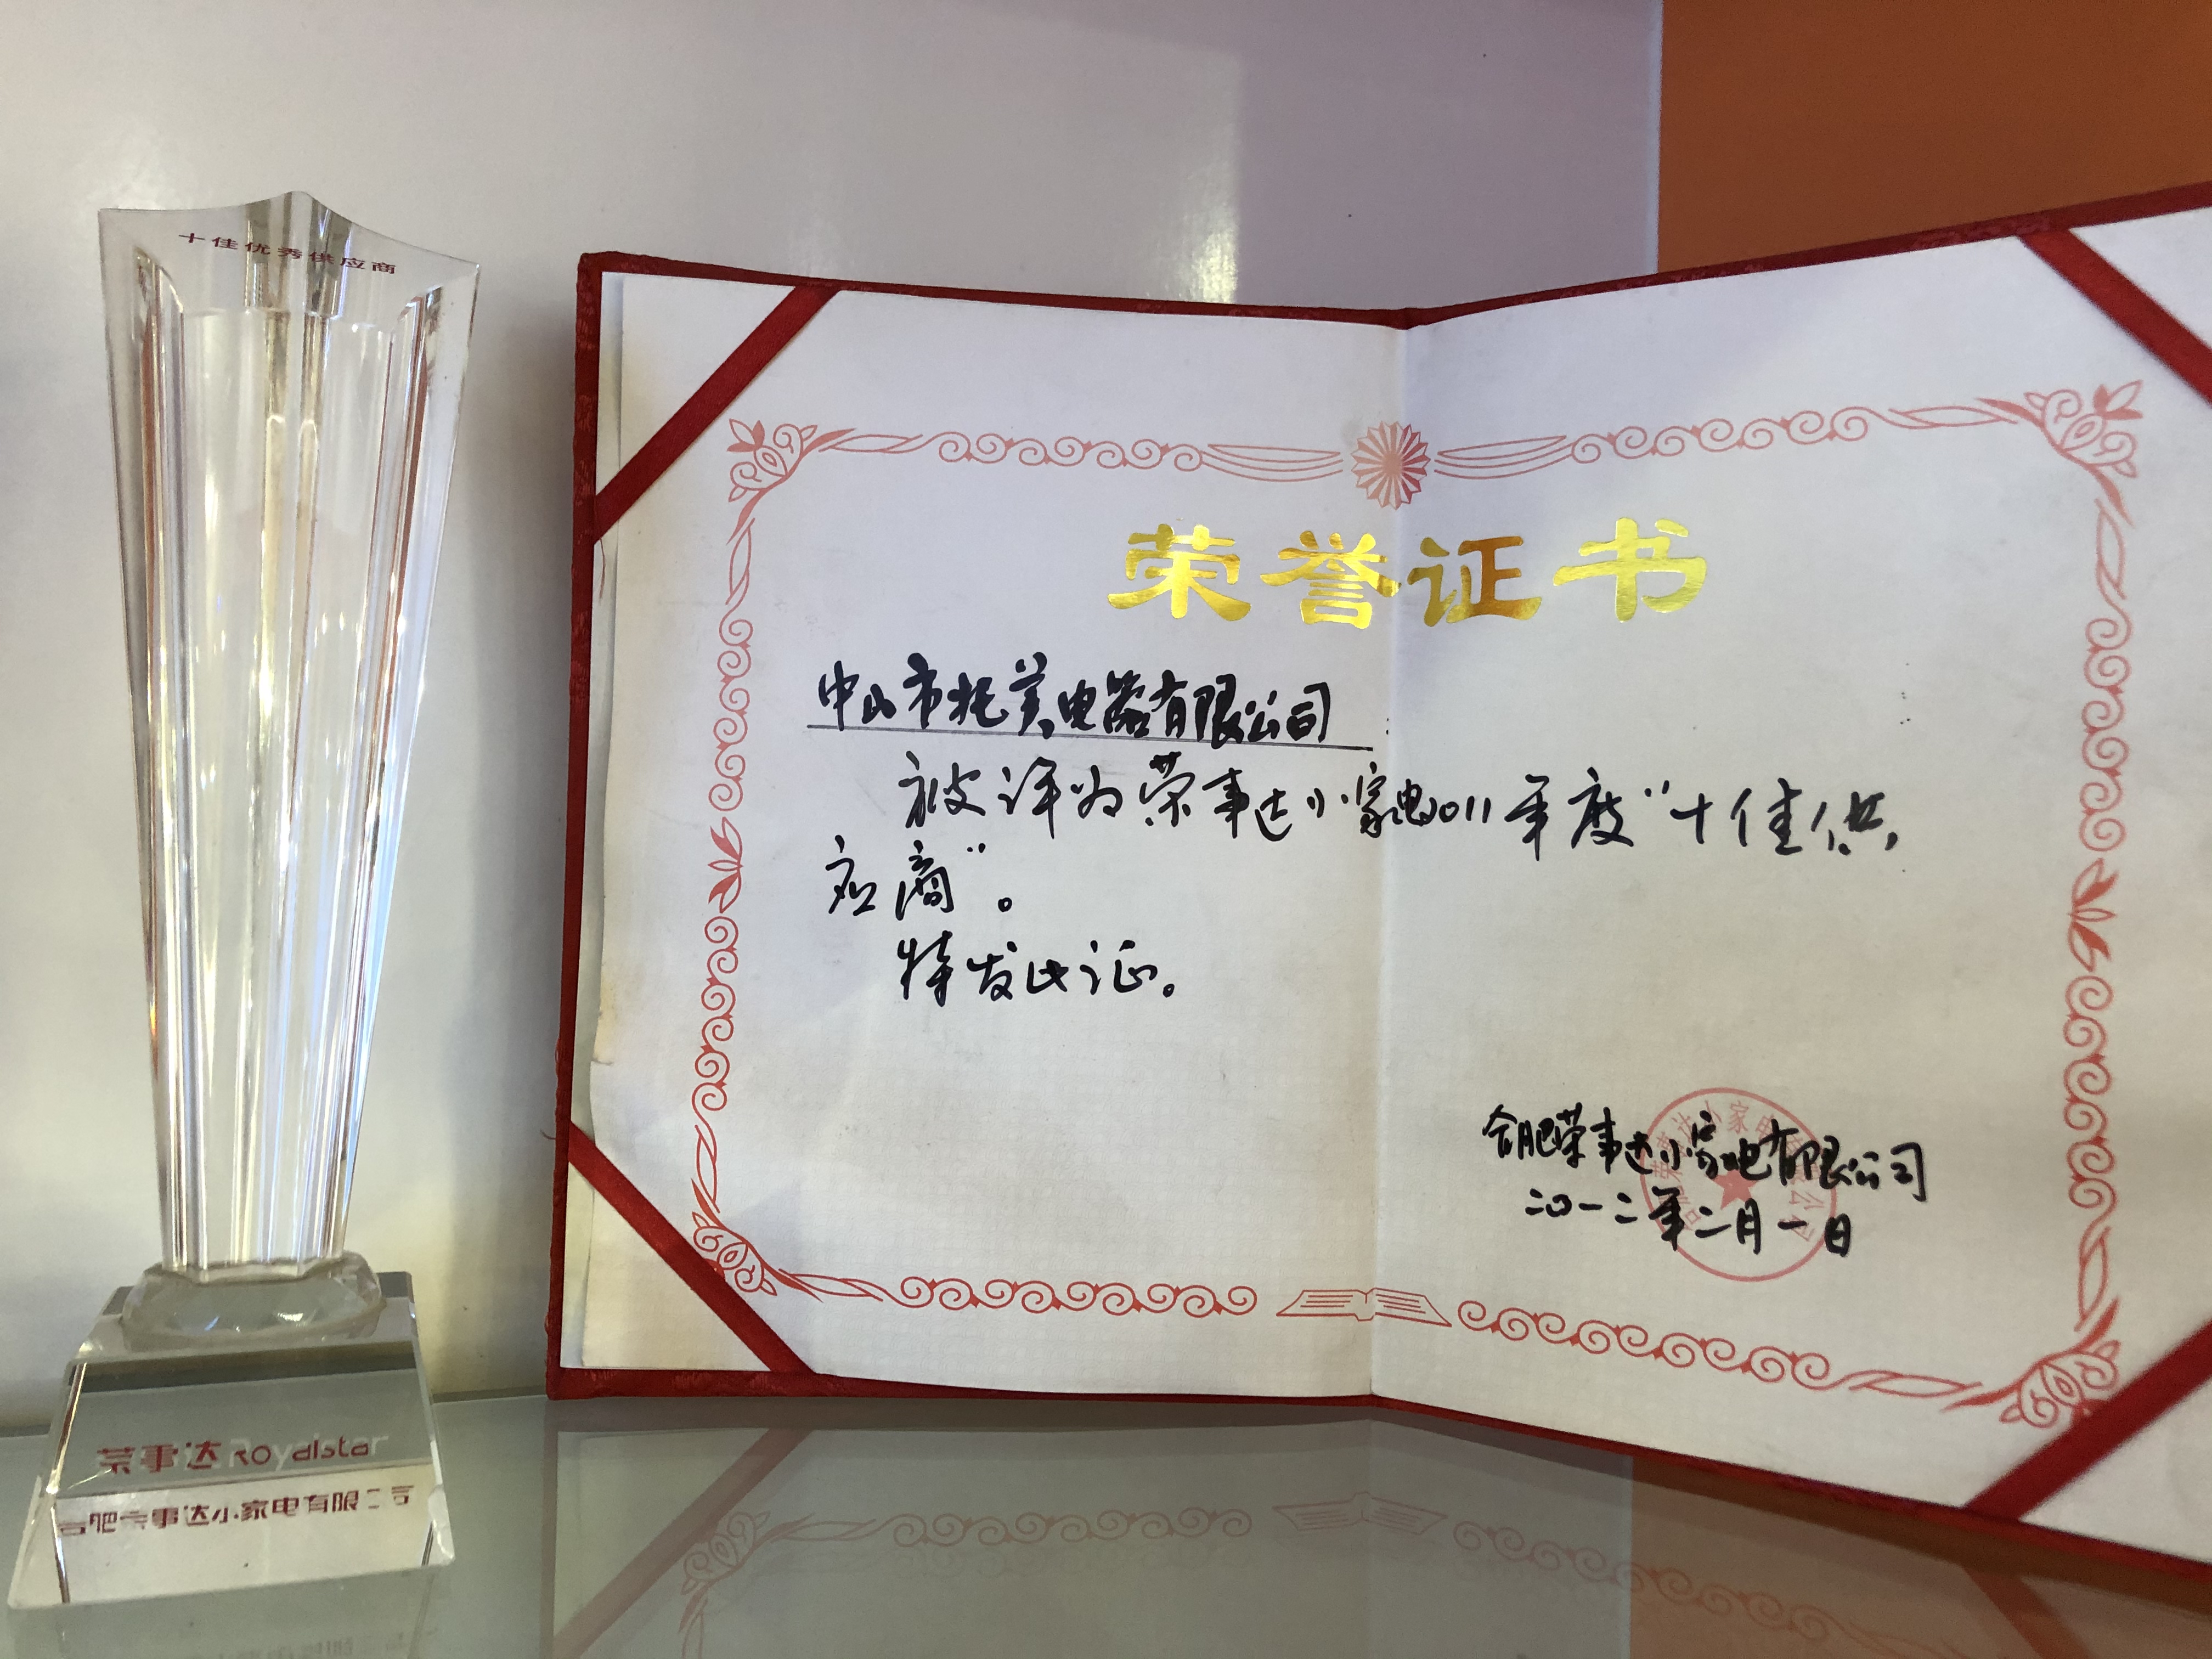 十佳优秀供应商
荣事达 Royalstar
合肥荣事达小家电有限公司
荣誉证书
中山市托美电器有限公司:
被评为荣事达小家电2011年度“十佳供
应商”。
特发此证。
合肥荣事达小家电有限公司
二〇一二年二月一日